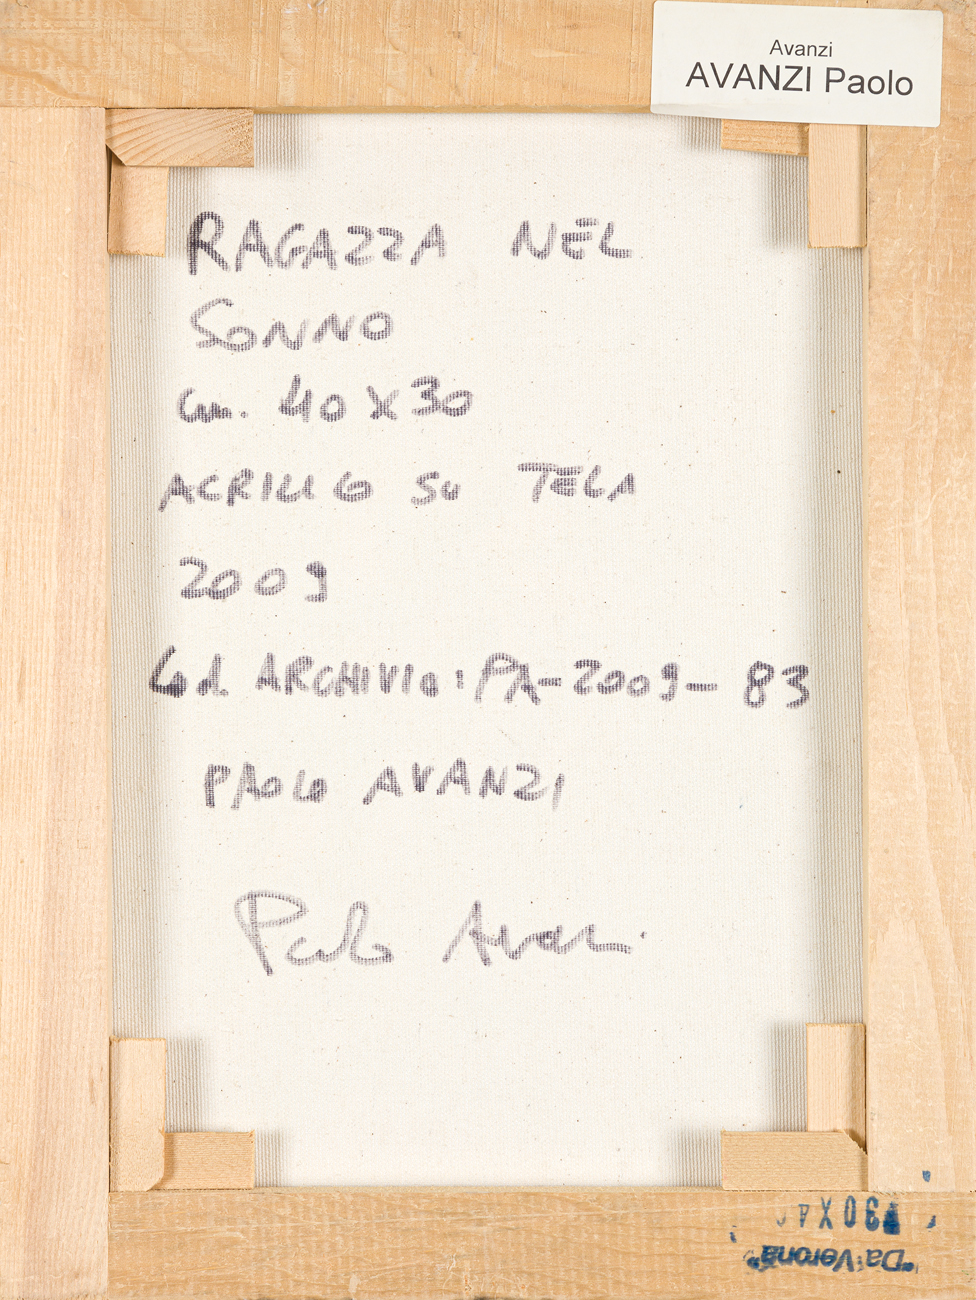 Avanzi
AVANZI Paolo
RAGAZZA NEL
SONNO
cm. 40 X 30
ACRILICO SU TELA
2009
Cod. ARCHIVIO: PA-2009-83
PAOLO AVANZI
Paolo Avanzi
30X4
"Da Verona"